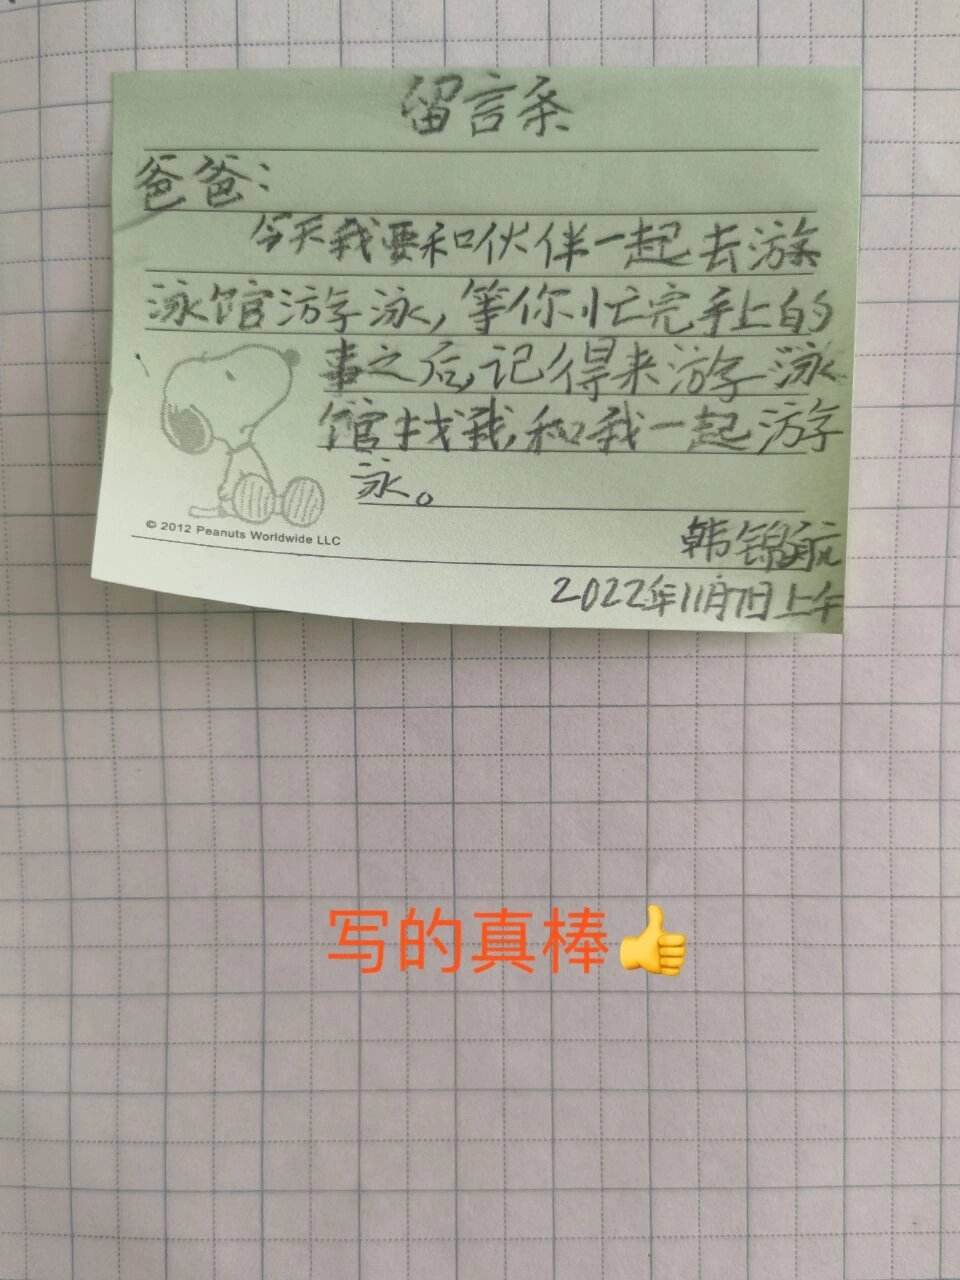 留言条
爸爸：
今天我要和伙伴一起去游
泳馆游泳，等你忙完手上的
事之后，记得来游泳
馆找我，和我一起游
泳。
© 2012 Peanuts Worldwide LLC
韩锦航
2022年11月7日上午
写的真棒👍